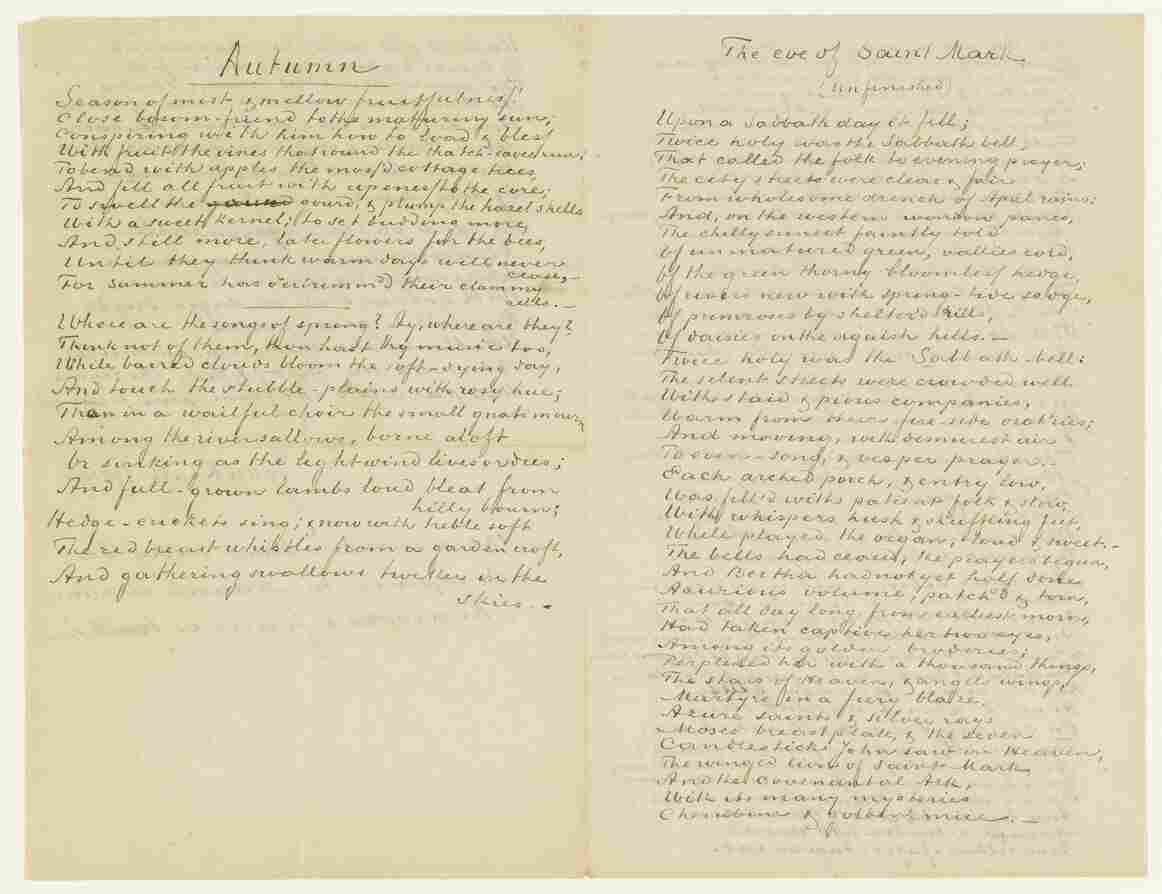 Autumn
Season of mist & mellow fruitfulness!
Close bosom-friend to the maturing sun;
Conspiring with him how to load & bless
With fruit the vines that round the thatch-eaves run;
To bend with apples the moss'd cottage trees,
And fill all fruit with ripeness to the core;
To swell the gourd, & plump the hazel shells
With a sweet kernel; to set budding more,
And still more, later flowers for the bees,
Until they think warm days will never
cease,—
For Summer has o'erbrimm'd their clammy
cells.—
Where are the songs of spring? Ay, where are they?
Think not of them, thou hast thy music too,
While barred clouds bloom the soft-dying day,
And touch the stubble-plains with rosy hue;
Then in a wailful choir the small gnats mourn
Among the river sallows, borne aloft
Or sinking as the light wind lives or dies;
And full-grown lambs loud bleat from
hilly bourn;
Hedge-crickets sing; & now with treble soft
The red breast whistles from a garden croft,
And gathering swallows twitter in the
skies.—
The eve of Saint Mark.
(Unfinished)
Upon a Sabbath day it fell;
Twice holy was the Sabbath bell,
That called the folk to evening prayer;
The city streets were clean & fair
From wholesome drench of April rains:
And, on the western window panes,
The chilly sunset faintly told
Of unmatured green, vallies cold,
Of the green thorny bloomless hedge,
Of rivers new with spring-tide sedge,
Of primroses by shelter'd rills,
Of daisies on the aguish hills.—
Twice holy was the Sabbath-bell:
The silent streets were crowded well
With staid & pious companies,
Warm from their fire-side orat'ries;
And moving, with demurest air
To even-song, & vesper prayer.—
Each arched porch, & entry low,
Was fill'd with patient folk & slow,
With whispers hush & shuffling feet,
While played the organ, loud & sweet.—
The bells had ceased, the prayers begun,
And Bertha had not yet half done
A curious volume, patch'd & torn,
That all day long, from earliest morn,
Had taken captive her two eyes,
Among its golden broderies;
Perplexed her with a thousand things,
The stars of Heaven, & angels wings,
Martyrs in a fiery blaze,
Azure saints & silver rays
Moses breastplate, & the seven
Candlesticks John saw in Heaven,
The winged lion of Saint Mark,
And the Covenantal Ark,
With its many mysteries
Cherubim & golden mice.—